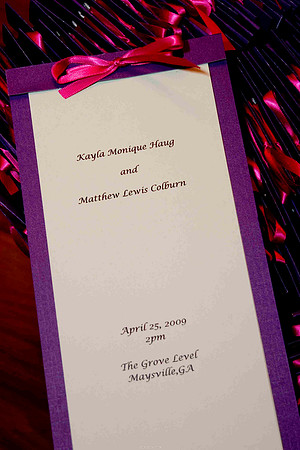 Kayla Monique Haug
and
Matthew Lewis Colburn
April 25, 2009
2pm
The Grove Level
Maysville,GA